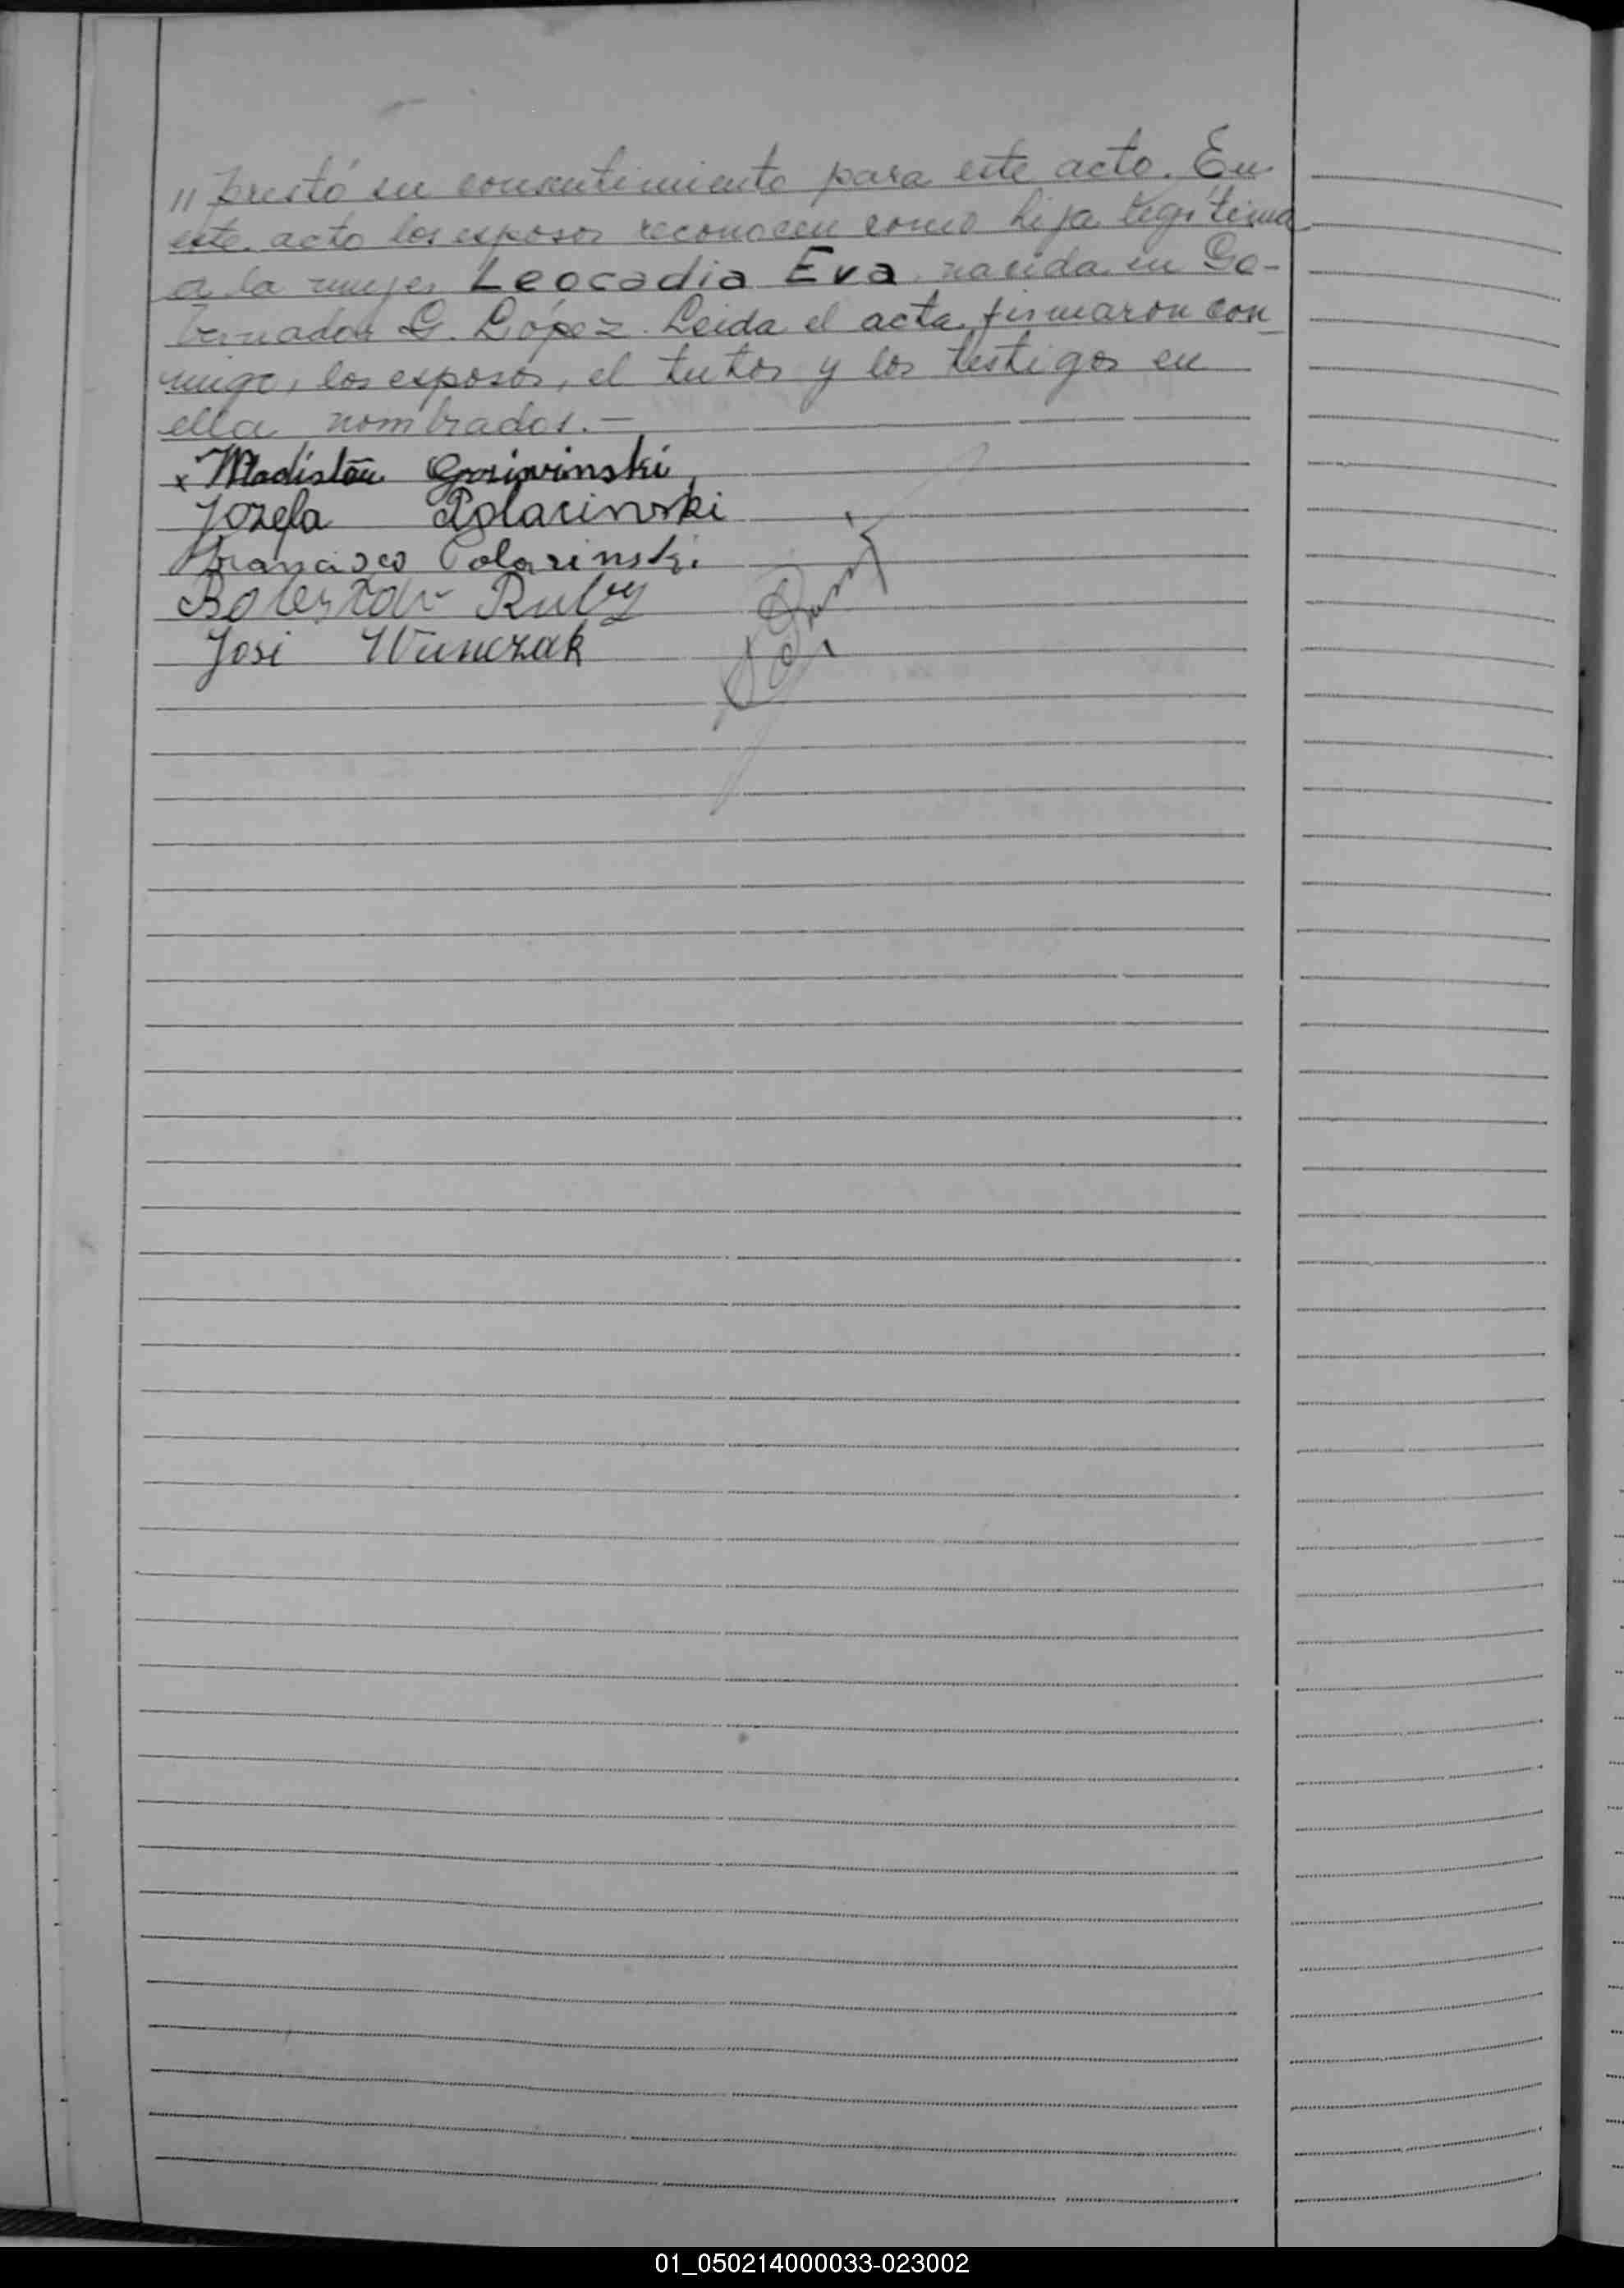 " prestó su consentimiento para este acto. En
este acto los esposos reconocen como hija legítima
a la mujer Leocadia Eva nacida en Go-
bernador G. López. Leida el acta, firmaron con_
migo, los esposos, el tutor y los testigos en
ella nombrados.—
x Wladislau
Jozefa Polacinski
Francisco Polacinski
Boleslav Ruby
José
01_050214000033-023002